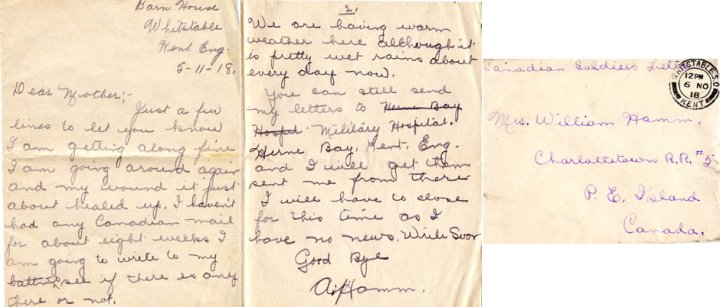 Barn House
Whitstable
Kent Eng.
5-11-18.
Dear Mother;-
Just a few
lines to let you know
I am getting along fine
I am going around again
and my wound it just
about healed up. I haven't
had any Canadian mail
for about eight weeks I
am going to write to my
battn, see if there is any
there or not.
2.
We are having warm
weather here although it
is pretty wet rains about
every day now.
You can still send
my letters to Herne Bay
Hospt. Military Hospital.
Herne Bay, Kent, Eng.
and I will get them
sent me from there
I will have to close
for this time as I
have no news. Write Soon
Good Bye
Hamm.
Canadian Soldiers Letter
WHITSTABLE S.O
12 PM
6 NO
18
KENT
Mrs. William Hamm.
Charlottetown R.R. #5
P. E. Island
Canada.